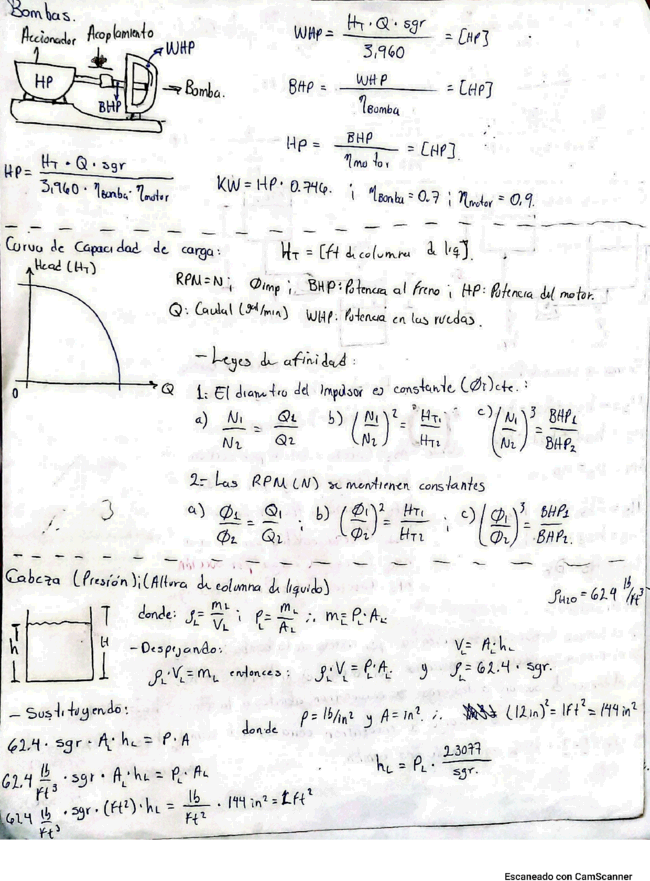 Bombas.
Accionador Acoplamiento
WHP
HP
BHP
Bomba.
WHP = HT · Q · sgr / 3,960 = [HP]
BHP = WHP / ηBomba = [HP]
HP = BHP / ηmotor = [HP].
HP = HT · Q · sgr / 3,960 · ηBomba · ηmotor
KW = HP · 0.746. ; ηBomba = 0.7 ; ηmotor = 0.9.
Curva de Capacidad de carga:
HT = [ft d columna d liq].
Head (HT)
0
Q
RPM = N ; Øimp ; BHP: Potencia al freno ; HP: Potencia del motor.
Q: Caudal (gal/min) WHP: Potencia en las ruedas.
- Leyes de afinidad:
1: El diametro del impulsor es constante (Ø2)cte. :
a) N1/N2 = Q1/Q2 b) (N1/N2)² = HT1/HT2 c) (N1/N2)³ = BHP1/BHP2
2- Las RPM (N) se mantienen constantes
a) Ø1/Ø2 = Q1/Q2 ; b) (Ø1/Ø2)² = HT1/HT2 ; c) (Ø1/Ø2)³ = BHP1/BHP2.
3
Cabeza (Presión) ; (Altura de columna de líquido)
ρH2O = 62.4 lb/ft³
h
H
donde: ρL = mL/VL ; PL = mL/AL ∴ mL = PL · AL
- Despejando:
VL = AL · hL
ρL · VL = mL entonces: ρL · VL = PL · AL y ρL = 62.4 · sgr.
- Sustituyendo:
62.4 · sgr · AL · hL = P · A
donde P = lb/in² y A = in² ∴ (12in)² = 1ft² = 144 in²
62.4 lb/ft³ · sgr · AL · hL = PL · AL
hL = PL · 2.3077/sgr.
62.4 lb/ft³ · sgr · (ft²) · hL = lb/ft² · 144 in² = 1ft²
Escaneado con CamScanner